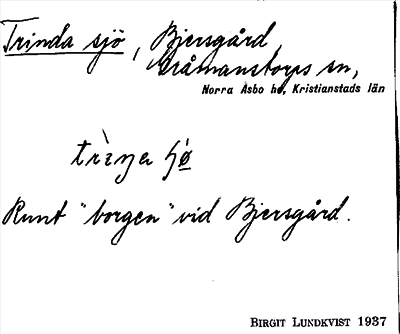 Trinda sjö, Bjersgård
Gråmanstorps sn,
Norra Åsbo hd, Kristianstads län
Runt "borgen" vid Bjersgård.
BIRGIT LUNDKVIST 1937